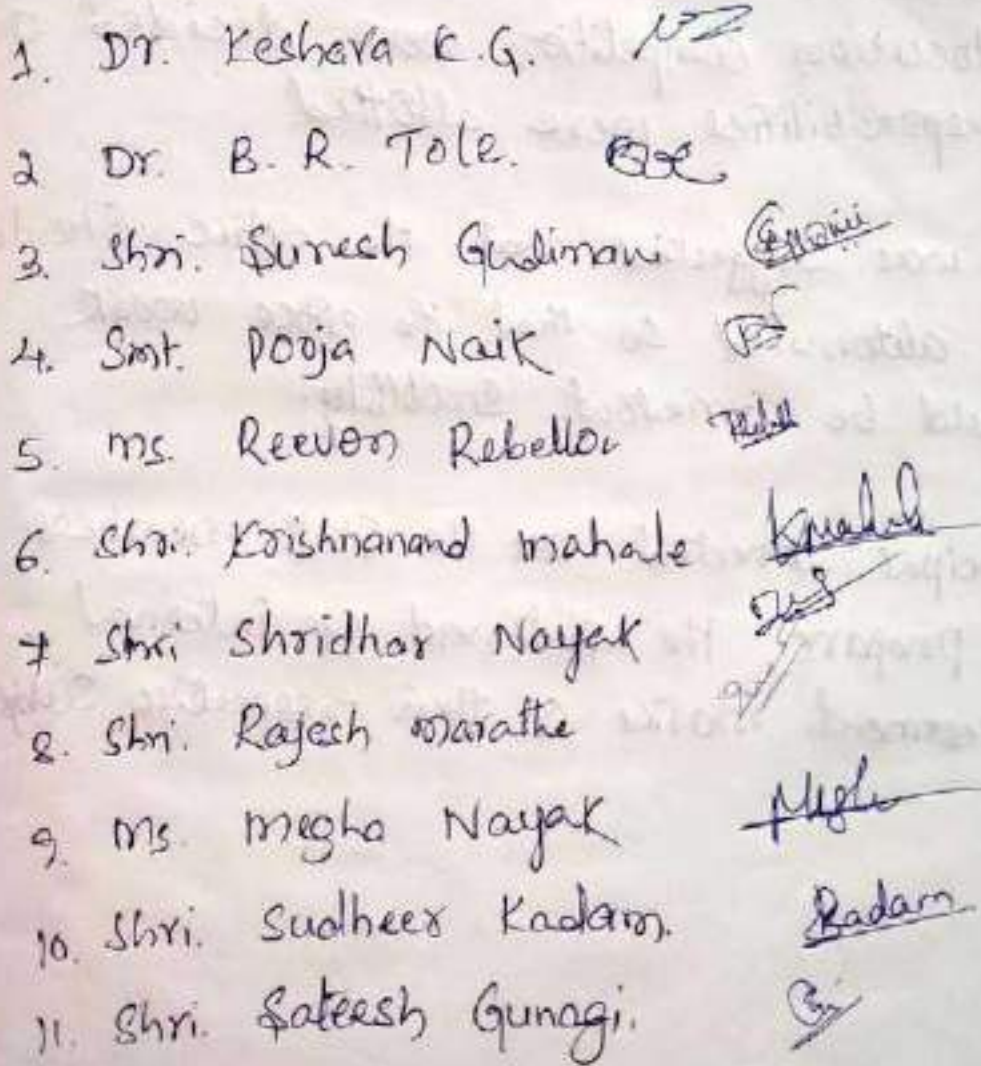 1. Dr. Keshava K.G.
2 Dr. B. R. Tole.
3. Shri. Suresh Gudimani
4. Smt. Pooja Naik
5. ms. Reevon Rebello
6. Shri. Krishnanand mahale Kmahale
7 Shri Shridhar Nayak
8. Shri. Rajesh marathe
9. ms. megha Nayak Megha
10. Shri. Sudheer Kadam. Kadam
11. Shri. Sateesh Gunagi.